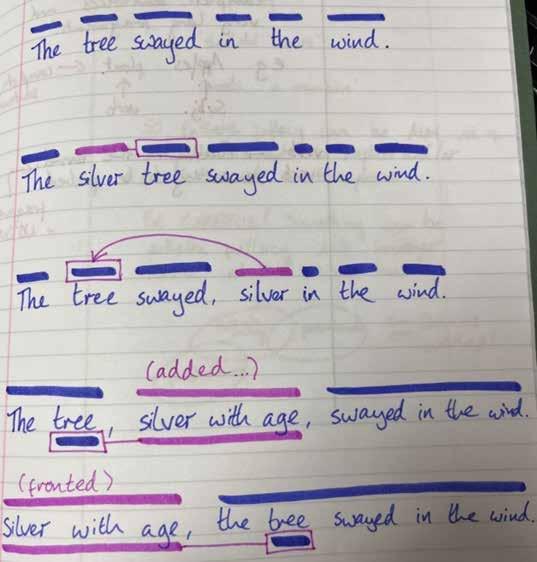 The tree swayed in the wind.
The silver tree swayed in the wind.
The tree swayed, silver in the wind.
(added...)
The tree, silver with age, swayed in the wind.
(fronted)
Silver with age, the tree swayed in the wind.